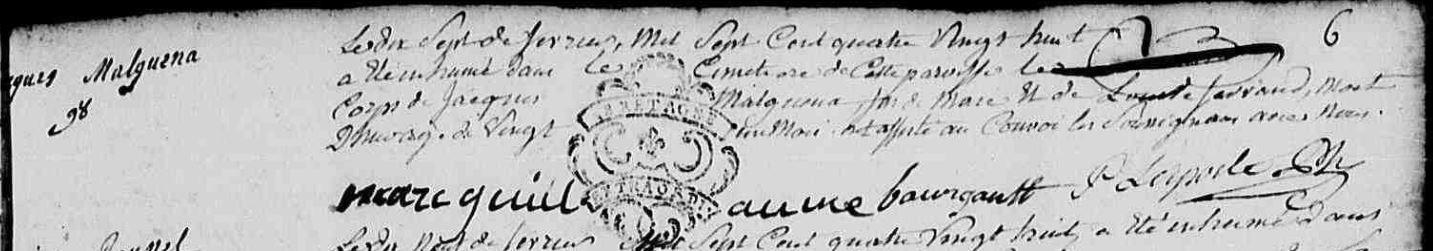 6
Le dix Sept de fevrier, Mil Sept Cent quatre Vingt huit
Jacques Malguena
a été inhumé dans le Cimetiere de Cette paroisse le
98
Corps de Jacques Malguena fils de Marc Et de Louise ferrand, Mort
agé de Vingt un Mois ont assisté au Convoi les Soussignans avec Nous.
BRETAGNE
marc guill aume bourgault
Le dix Sept de fevrier Mil Sept Cent quatre Vingt huit a été inhumé dans